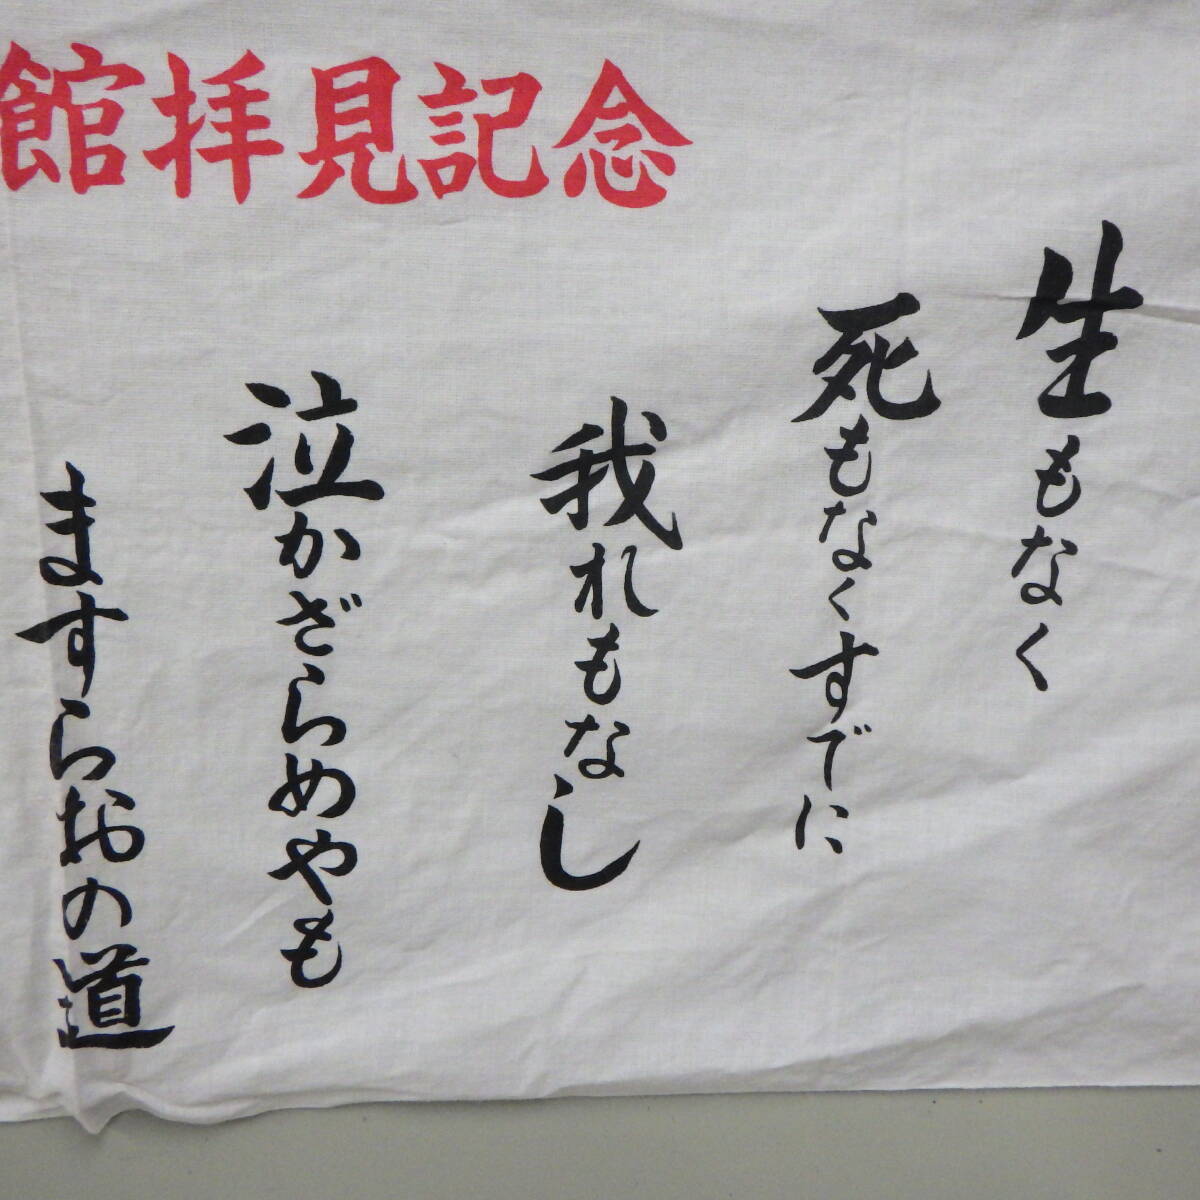 館拝見記念
生もなく
死もなくすでに
我れもなし
泣かざらめやも
ますらおの道